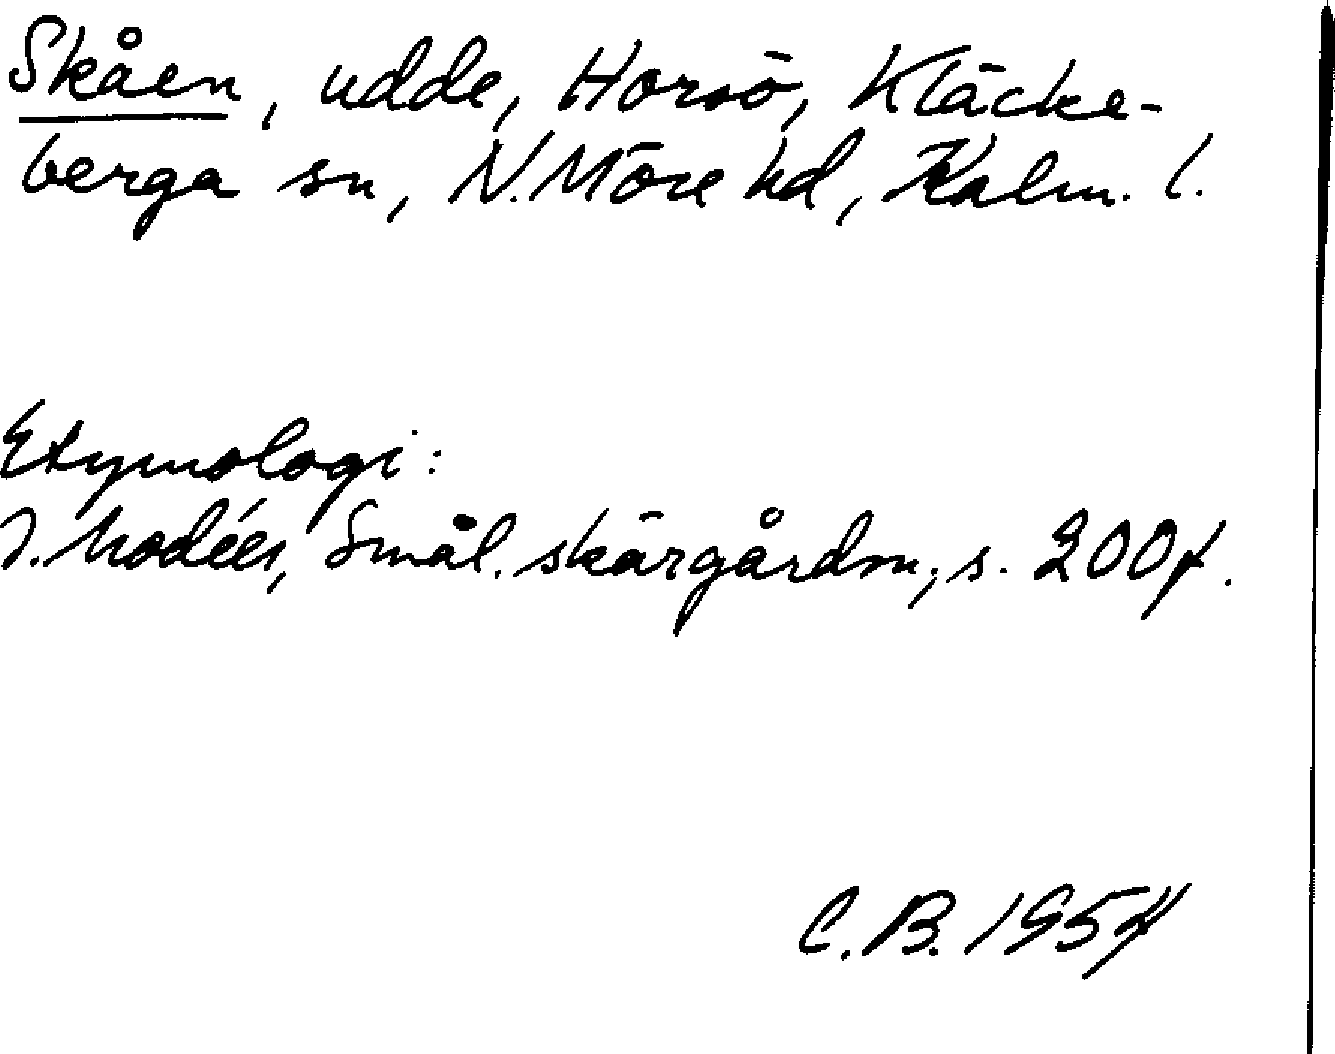 Skåen, udde, Horsö, Kläcke-
berga sn, N. Möre hd, Kalm. l.
Etymologi:
I. Modéer, Smål. skärgårdsn., s. 200f.
C. B. 1954